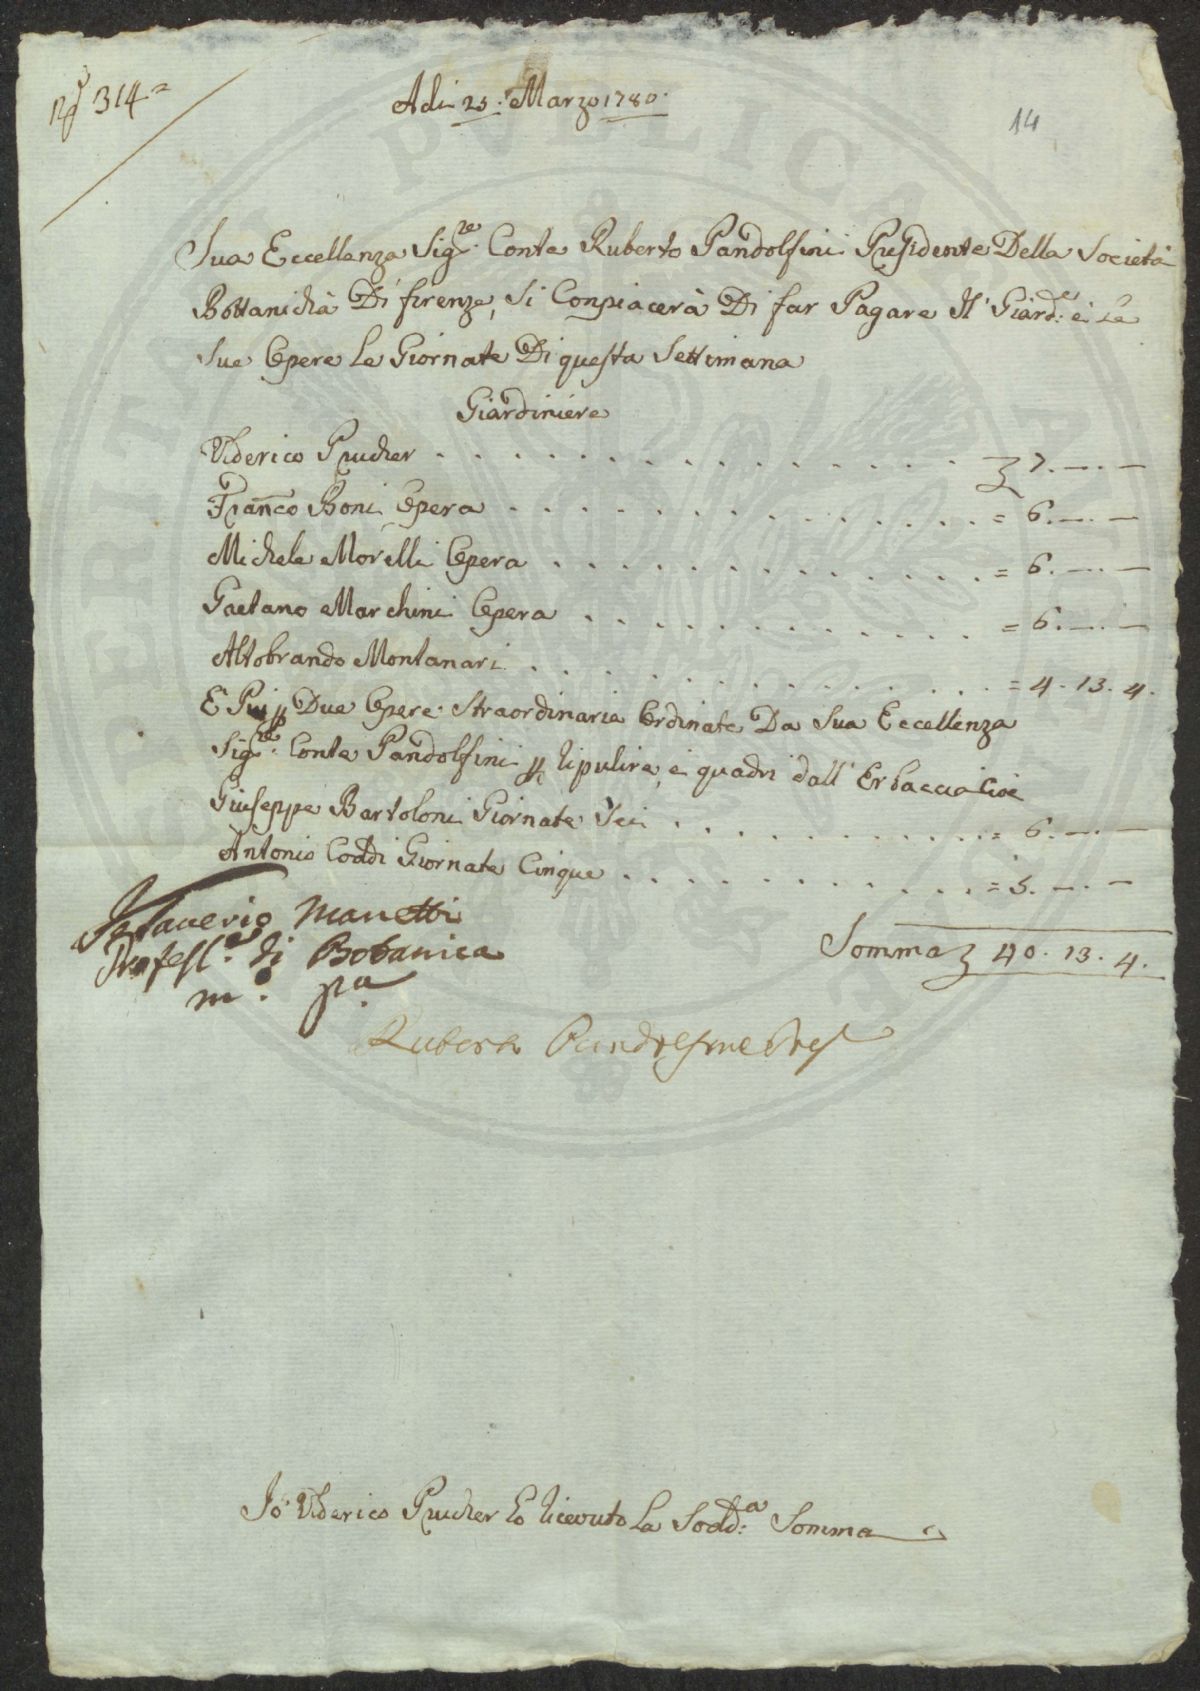 N.º 314=
Adi 25. Marzo 1780.
14
Sua Eccellenza Sig.re Conte Ruberto Pandolfini Presidente Della Società
Bottanicha Di firenze, Si Conpiacerà Di far Pagare Il Giard.e e Le
Sue Opere Le Giornate Di questa Settimana
Giardiniere
Uderico Prucher . . . . . . . . . . . . . . . . 7. —. —
Fran.co Boni Opera . . . . . . . . . . . . . . = 6. —. —
Michele Morelli Opera . . . . . . . . . . . . = 6. —. —
Gaetano Marchini Opera . . . . . . . . . . . = 6. —. —
Altobrando Montanari . . . . . . . . . . . . . = 4. 13. 4.
E Più Due Opere Straordinarie Ordinate Da Sua Eccellenza
Sig.re Conte Pandolfini p ripulire, e quadri dall' Erbaccia Cioè
Giuseppe Bartoloni Giornate Sei . . . . . . . . . = 6. —. —
Antonio Coddi Giornate Cinque . . . . . . . . . . = 5. —. —
Somma 40. 13. 4.
Saverio Manetti
Profess.e di Botanica
m.o pa
Ruberto Pandolfini Pres
Io Uderico Prucher ho ricevuto La Sodd.a Somma
PVBLICA